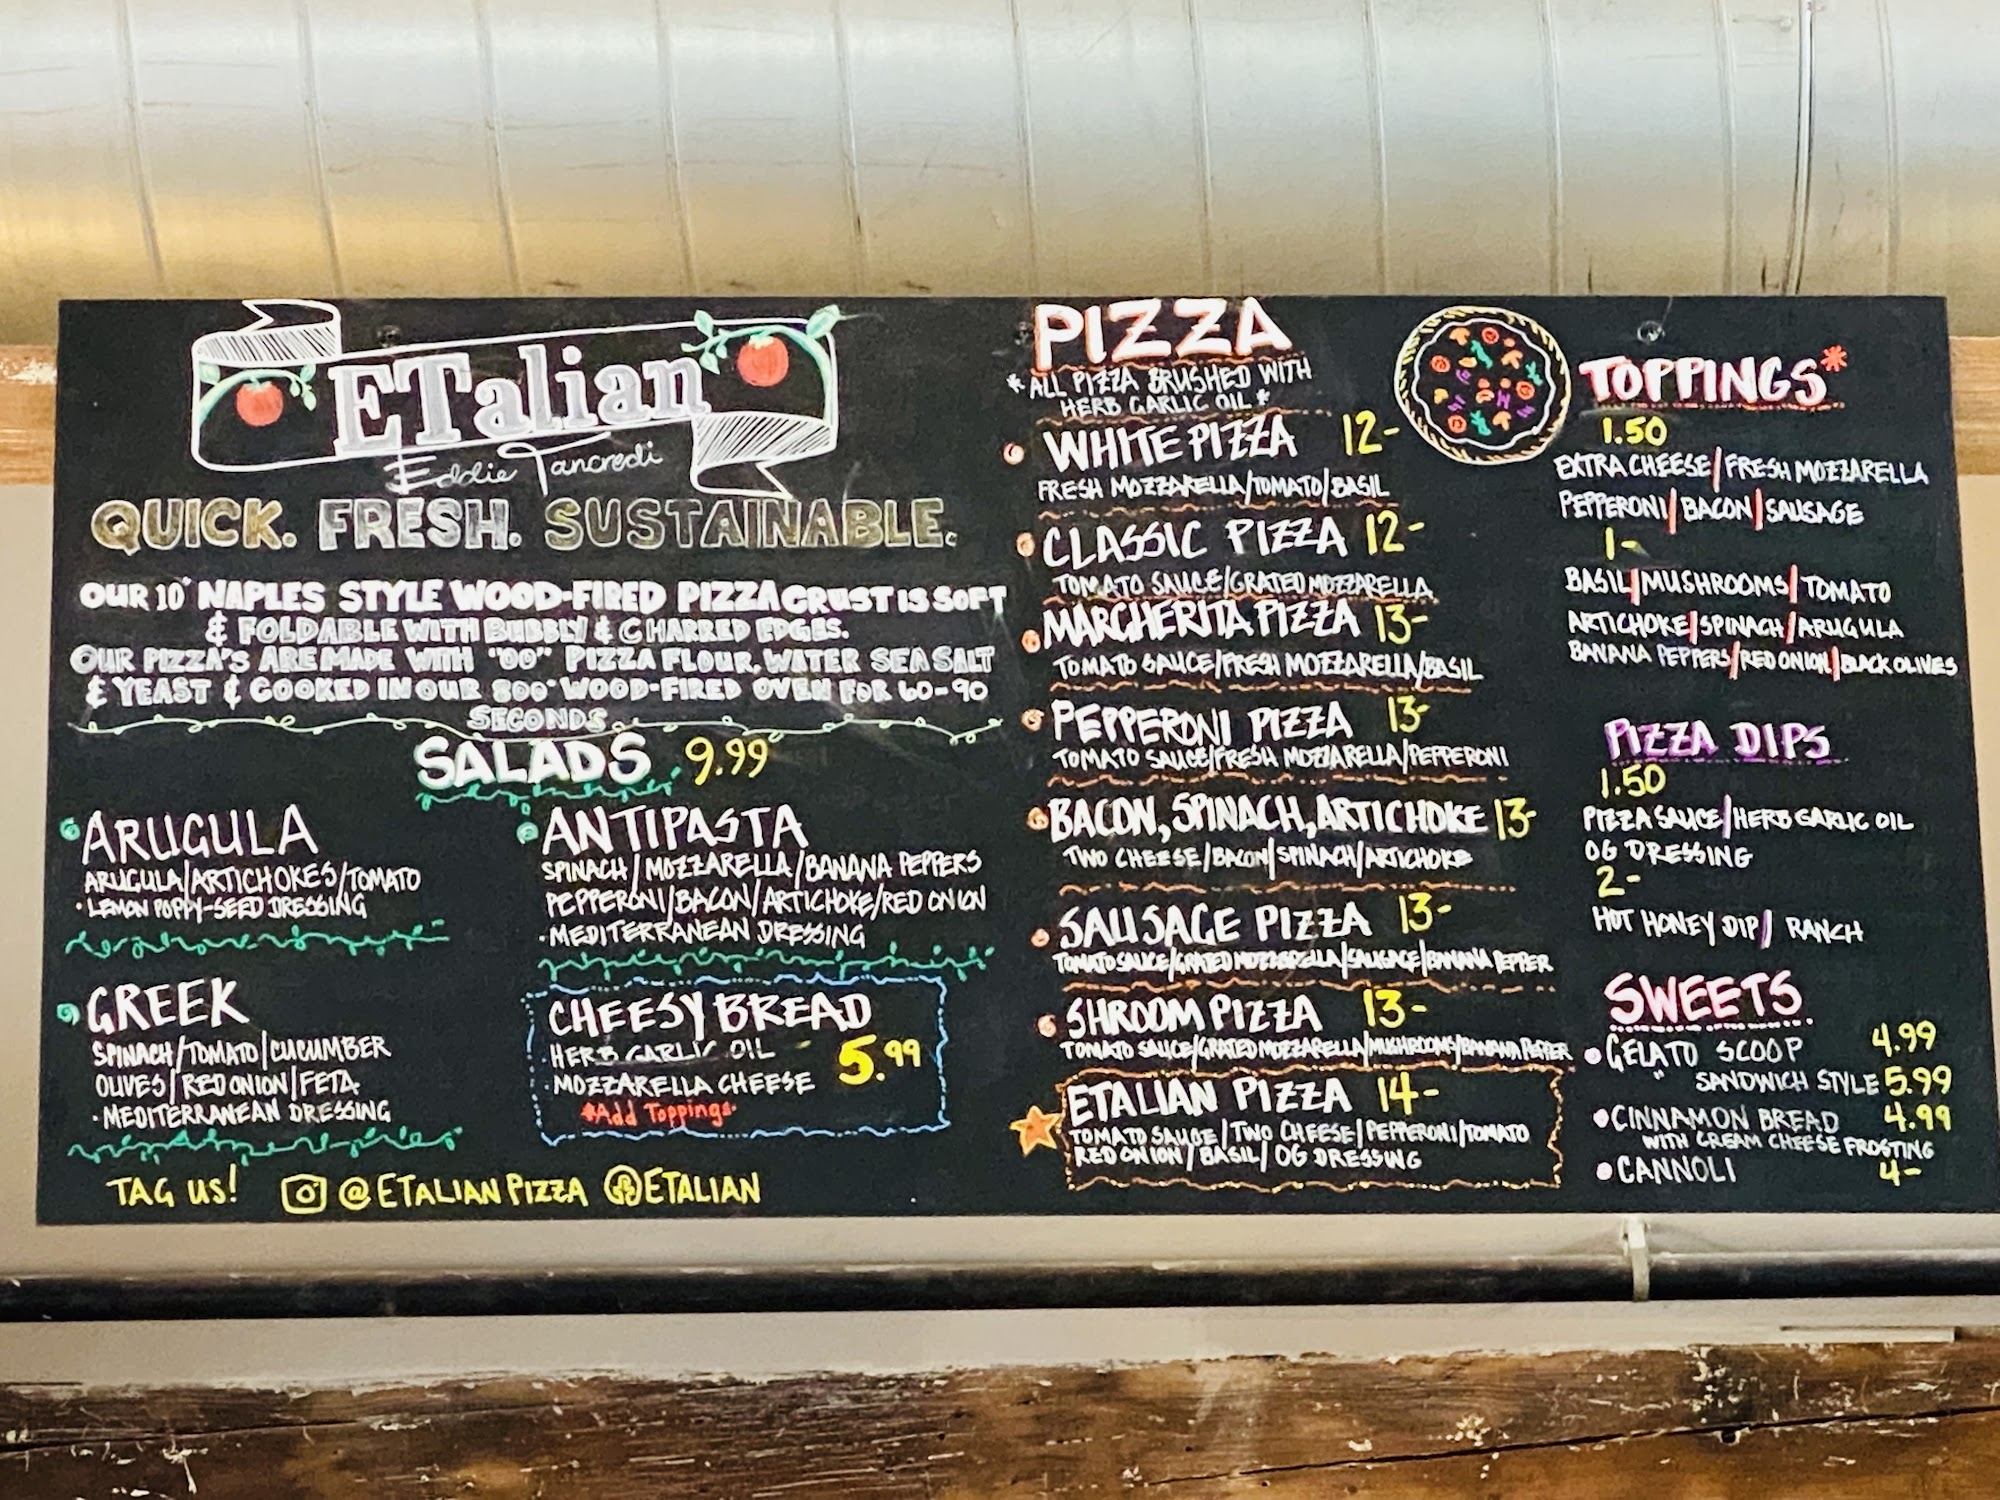 ETalian
Eddie Tancredi
QUICK. FRESH. SUSTAINABLE.
OUR 10" NAPLES STYLE WOOD-FIRED PIZZA CRUST IS SOFT
& FOLDABLE WITH BUBBLY & CHARRED EDGES.
OUR PIZZA'S ARE MADE WITH "00" PIZZA FLOUR, WATER SEA SALT
& YEAST & COOKED IN OUR 800° WOOD-FIRED OVEN FOR 60-90
SECONDS
SALADS 9.99
ARUGULA
ARUGULA/ARTICHOKES/TOMATO
· LEMON POPPY-SEED DRESSING
GREEK
SPINACH/TOMATO/CUCUMBER
OLIVES/RED ONION/FETA
· MEDITERRANEAN DRESSING
ANTIPASTA
SPINACH/MOZZARELLA/BANANA PEPPERS
PEPPERONI/BACON/ARTICHOKE/RED ONION
· MEDITERRANEAN DRESSING
CHEESY BREAD
· HERB GARLIC OIL 5.99
· MOZZARELLA CHEESE
*Add Toppings·
TAG US! @ETALIANPIZZA ETALIAN
PIZZA
*ALL PIZZA BRUSHED WITH
HERB GARLIC OIL*
WHITE PIZZA 12-
FRESH MOZZARELLA/TOMATO/BASIL
CLASSIC PIZZA 12-
TOMATO SAUCE/GRATED MOZZARELLA
MARGHERITA PIZZA 13-
TOMATO SAUCE/FRESH MOZZARELLA/BASIL
PEPPERONI PIZZA 13-
TOMATO SAUCE/FRESH MOZZARELLA/PEPPERONI
BACON, SPINACH, ARTICHOKE 13-
TWO CHEESE/BACON/SPINACH/ARTICHOKE
SAUSAGE PIZZA 13-
TOMATO SAUCE/GRATED MOZZARELLA/SAUSAGE/BANANA PEPPER
SHROOM PIZZA 13-
TOMATO SAUCE/GRATED MOZZARELLA/MUSHROOMS/BANANA PEPPER
ETALIAN PIZZA 14-
TOMATO SAUCE/TWO CHEESE/PEPPERONI/TOMATO
RED ONION/BASIL/OG DRESSING
TOPPINGS*
1.50
EXTRA CHEESE/FRESH MOZZARELLA
PEPPERONI/BACON/SAUSAGE
1-
BASIL/MUSHROOMS/TOMATO
ARTICHOKE/SPINACH/ARUGULA
BANANA PEPPERS/RED ONION/BLACK OLIVES
PIZZA DIPS
1.50
PIZZA SAUCE/HERB GARLIC OIL
OG DRESSING
2-
HOT HONEY DIP/ RANCH
SWEETS
GELATO SCOOP 4.99
" SANDWICH STYLE 5.99
CINNAMON BREAD 4.99
WITH CREAM CHEESE FROSTING
CANNOLI 4-